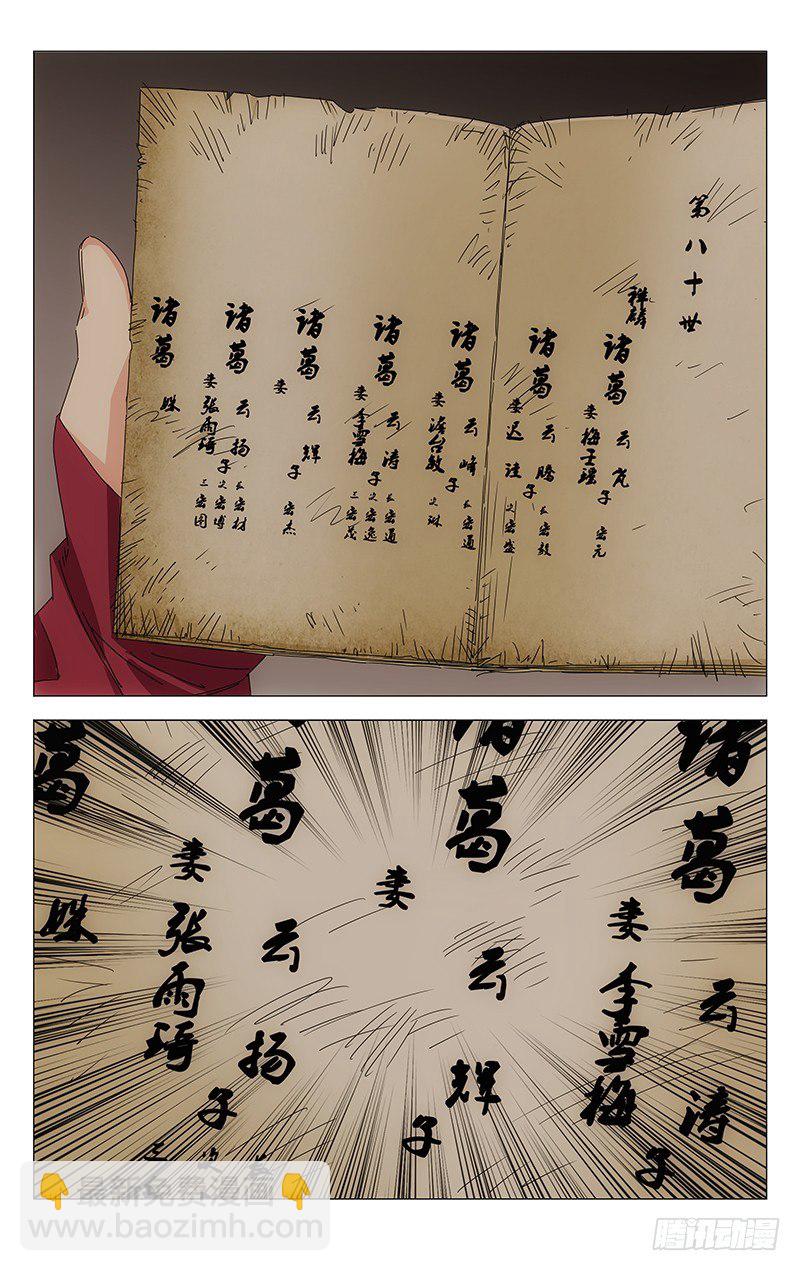 第八十世
祥麟
诸葛云岚
妻梅玉瑶
子宏元
诸葛云腾
妻迟
子长宏毅
次宏盛
诸葛云峰
妻澹台敏
子长宏通
次琳
诸葛云涛
妻李雪梅
子长宏通
次宏逸
三宏茂
诸葛云辉
妻
子宏杰
诸葛云扬
妻张雨琦
子长宏材
次宏博
三宏图
诸葛姝
诸葛云涛
妻李雪梅
子
葛云辉
妻
子
葛云扬
妻张雨琦
子
葛姝
最新免费漫画
www.baozimh.com
腾讯动漫